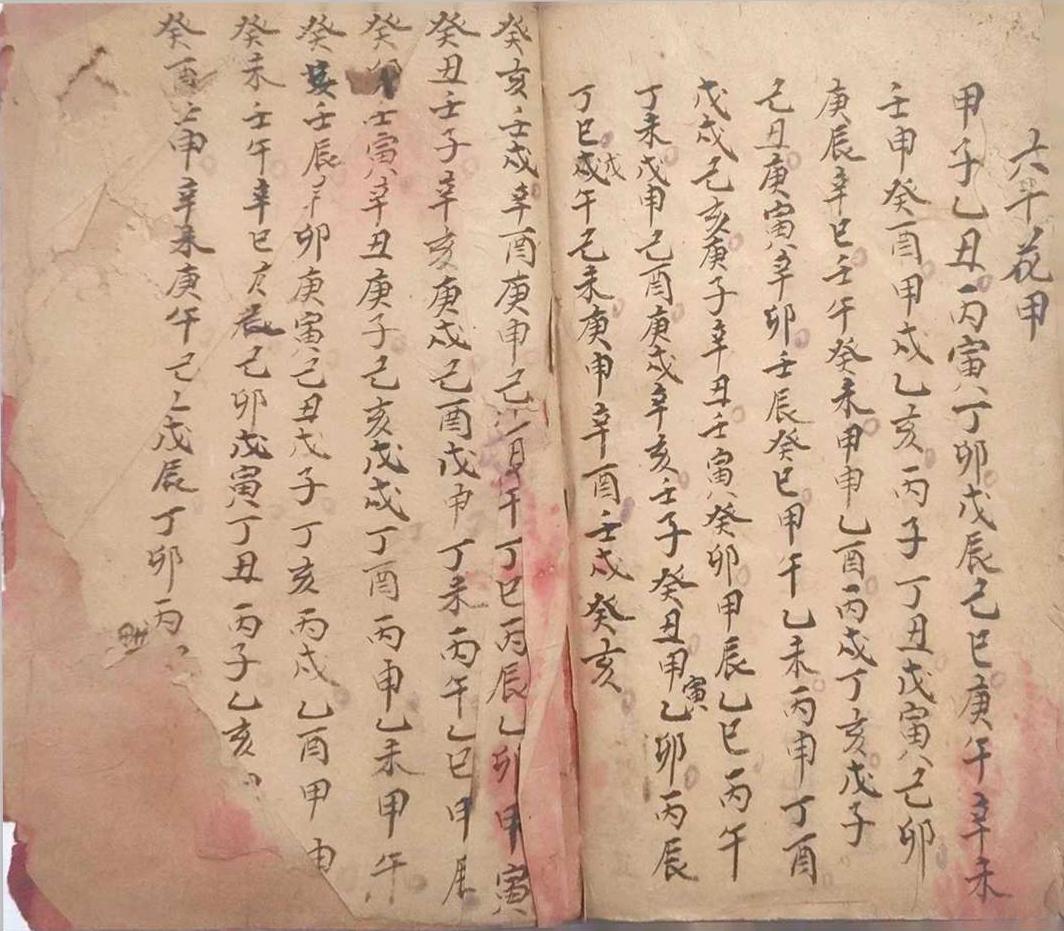 六十花甲
甲子乙丑丙寅丁卯戊辰己巳庚午辛未
壬申癸酉甲戌乙亥丙子丁丑戊寅己卯
庚辰辛巳壬午癸未甲申乙酉丙戌丁亥戊子
己丑庚寅辛卯壬辰癸巳甲午乙未丙申丁酉
戊戌己亥庚子辛丑壬寅癸卯甲辰乙巳丙午
丁未戊申己酉庚戌辛亥壬子癸丑甲寅乙卯丙辰
丁巳戊午己未庚申辛酉壬戌癸亥
癸亥壬戌辛酉庚申己午丁巳丙辰乙卯甲寅
癸丑壬子辛亥庚戌己酉戊申丁未丙午乙巳甲辰
癸卯壬寅辛丑庚子己亥戊戌丁酉丙申乙未甲午
癸壬辰辛卯庚寅己丑戊子丁亥丙戌乙酉甲申
癸未壬午辛巳庚辰己卯戊寅丁丑丙子乙亥
癸酉壬申辛未庚午己戊辰丁卯丙